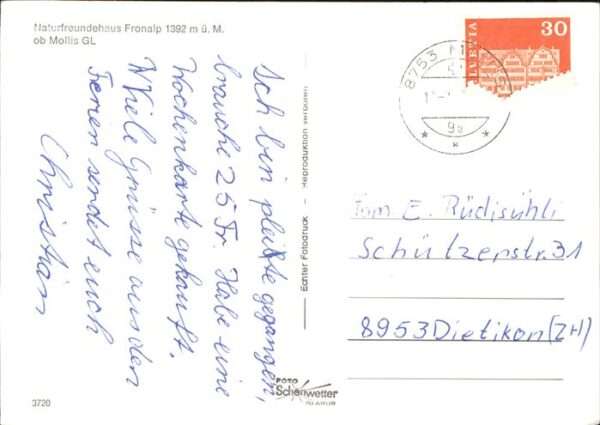 Naturfreundehaus Fronalp 1392 m ü. M.
ob Mollis GL
Ich bin pleite gegangen,
brauche 25 Fr. Habe eine
Wochenkarte gekauft.
Viele Grüsse aus den
Ferien sendet euch
Christian
3720
Echter Fotodruck – Reproduktion verboten
FOTO
Schönwetter
GLARUS
HELVETIA
30
8753
9a
Fam E. Rüdisühli
Schützenstr. 31
8953 Dietikon (ZH)